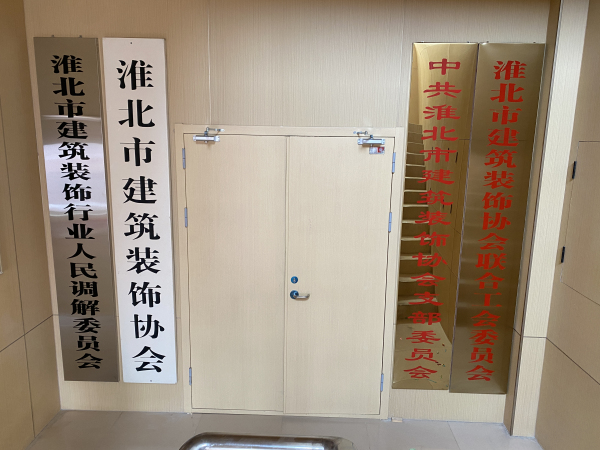 淮北市建筑装饰行业人民调解委员会
淮北市建筑装饰协会
中共淮北市建筑装饰协会支部委员会
淮北市建筑装饰协会联合工会委员会